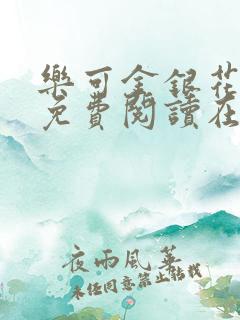 樂可金銀花
免費閱讀在
夜雨風華
未经同意禁止转载